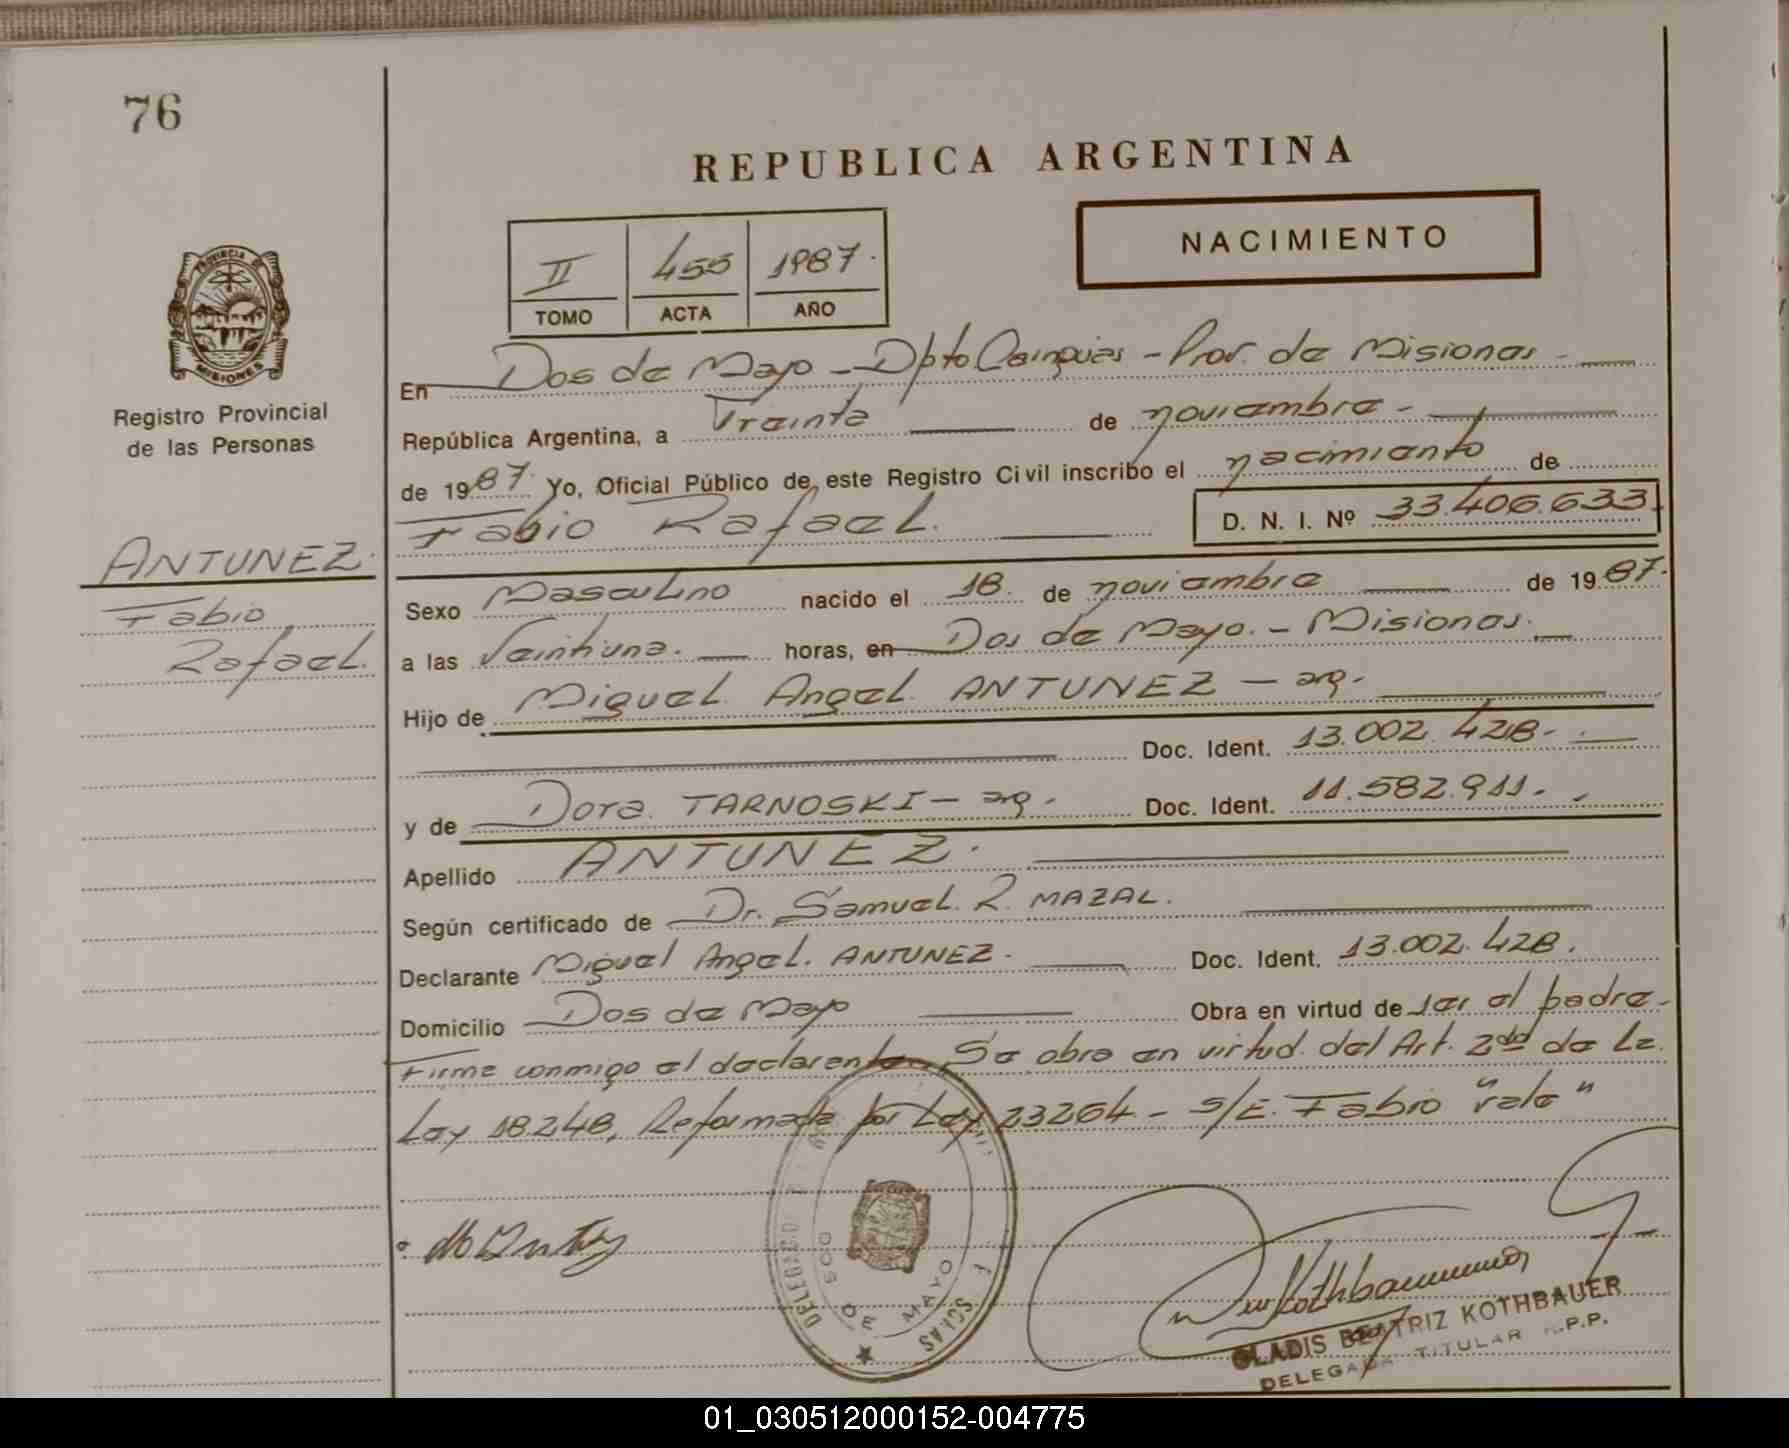 76
REPUBLICA ARGENTINA
NACIMIENTO
II 455 1987.
TOMO ACTA AÑO
PROVINCIA DE
MISIONES
Registro Provincial
de las Personas
En Dos de Mayo - Dpto Cainguas - Prov. de Misiones -
República Argentina, a Treinta de noviembre -
de 1987. Yo, Oficial Público de este Registro Civil inscribo el nacimiento de
Fabio Rafael. D. N. I. Nº 33.406.633.
ANTUNEZ.
Fabio
Rafael.
Sexo Masculino nacido el 18. de noviembre de 1987.
a las Veintiuna. horas, en Dos de Mayo. - Misiones.
Hijo de Miguel Angel ANTUNEZ - arg.
Doc. Ident. 13.002.428.-
y de Dora TARNOSKI - arg. Doc. Ident. 11.582.911.-
Apellido ANTUNEZ.
Según certificado de Dr. Samuel. R. MAZAL.
Declarante Miguel Angel. ANTUNEZ. Doc. Ident. 13.002.428.
Domicilio Dos de Mayo Obra en virtud de ser el padre.
Firma conmigo el declarante. Se obra en virtud del Art. 2do de La
Ley 18.248, Reformada por Ley 23264 - S/E. Fabio "vale"
DOS DE MAYO
GLADIS BEATRIZ KOTHBAUER
DELEGADA TITULAR R.P.P.
01_030512000152-004775